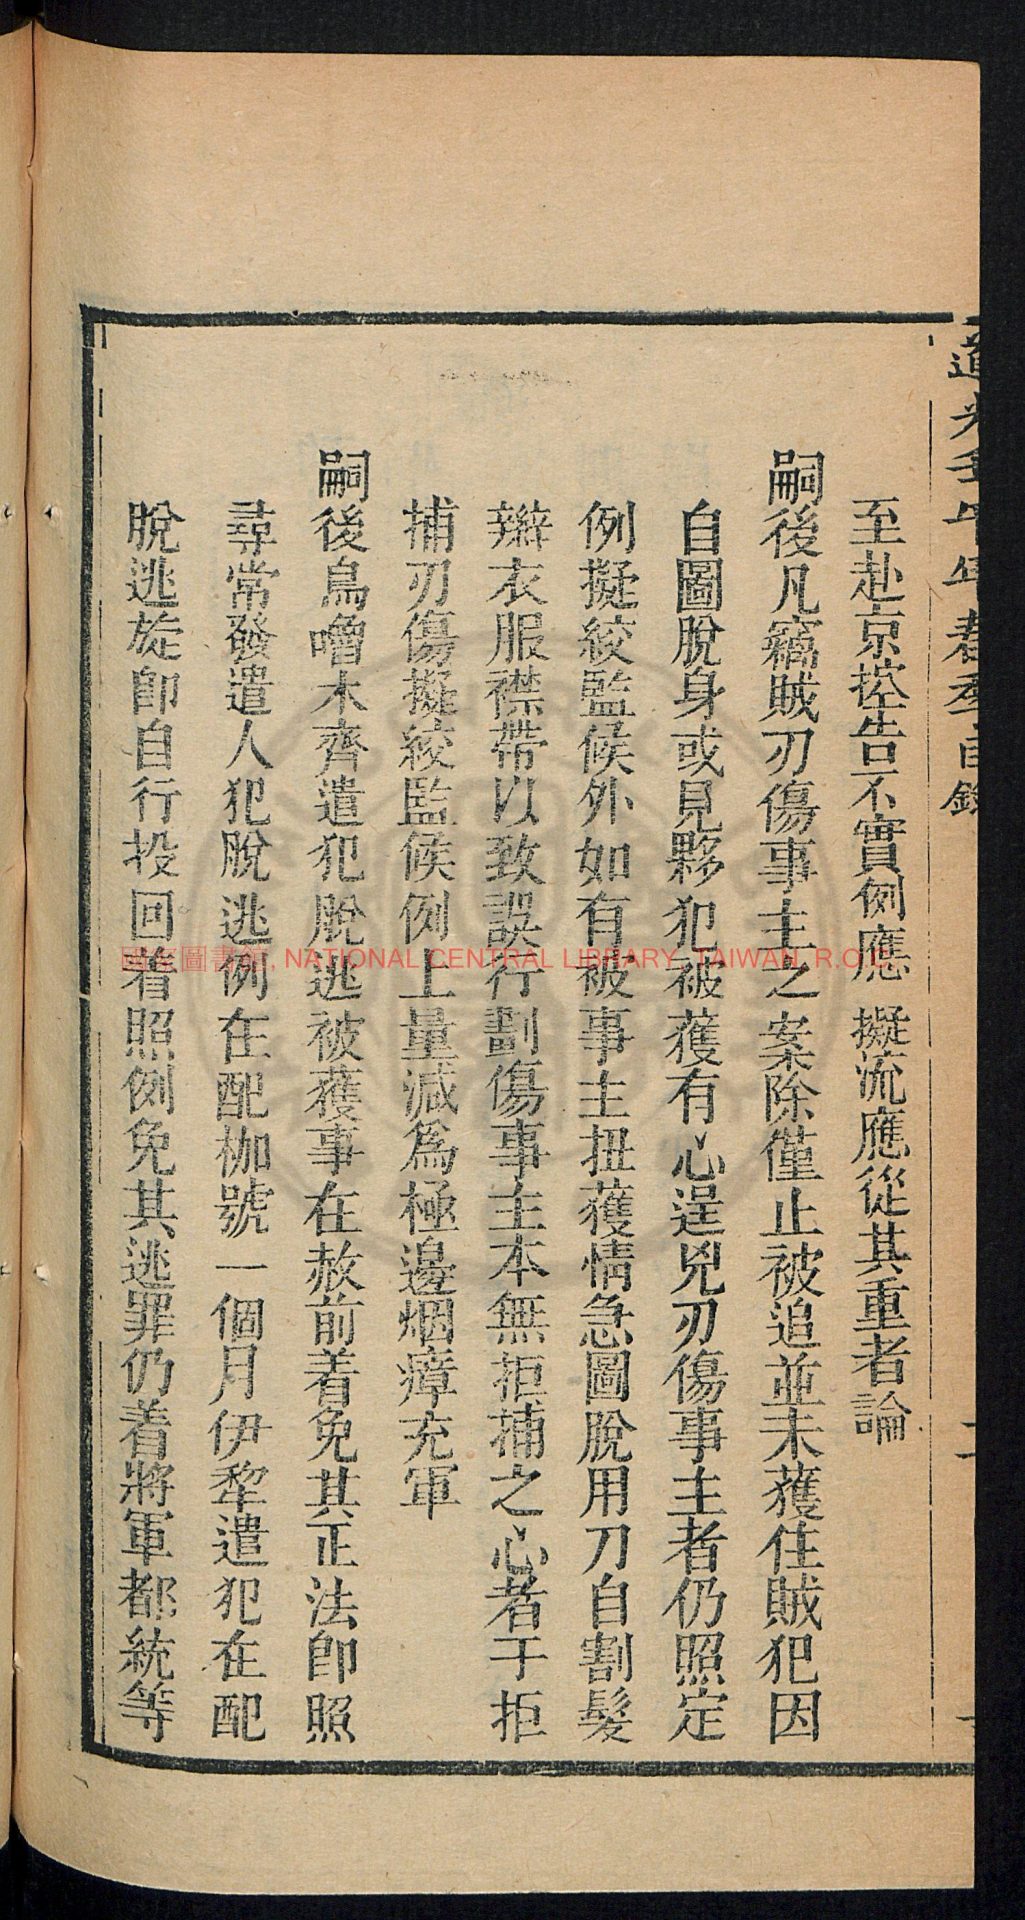 至赴京控告不實例應擬流應從其重者論
嗣後凡竊賊刃傷事主之案除僅止被追並未獲住賊犯因
自圖脫身或見夥犯被獲有心逞兇刃傷事主者仍照定
例擬絞監候外如有被事主扭獲情急圖脫用刀自割髮
辮衣服襟帶以致誤行劃傷事主本無拒捕之心者于拒
捕刃傷擬絞監候例上量減為極邊烟瘴充軍
嗣後烏嚕木齊遣犯脫逃被獲事在赦前着免其正法卽照
尋常發遣人犯脫逃例在配枷號一個月伊犂遣犯在配
脫逃旋卽自行投回着照例免其逃罪仍着將軍都統等
國家圖書館, NATIONAL CENTRAL LIBRARY, TAIWAN, R.O.C